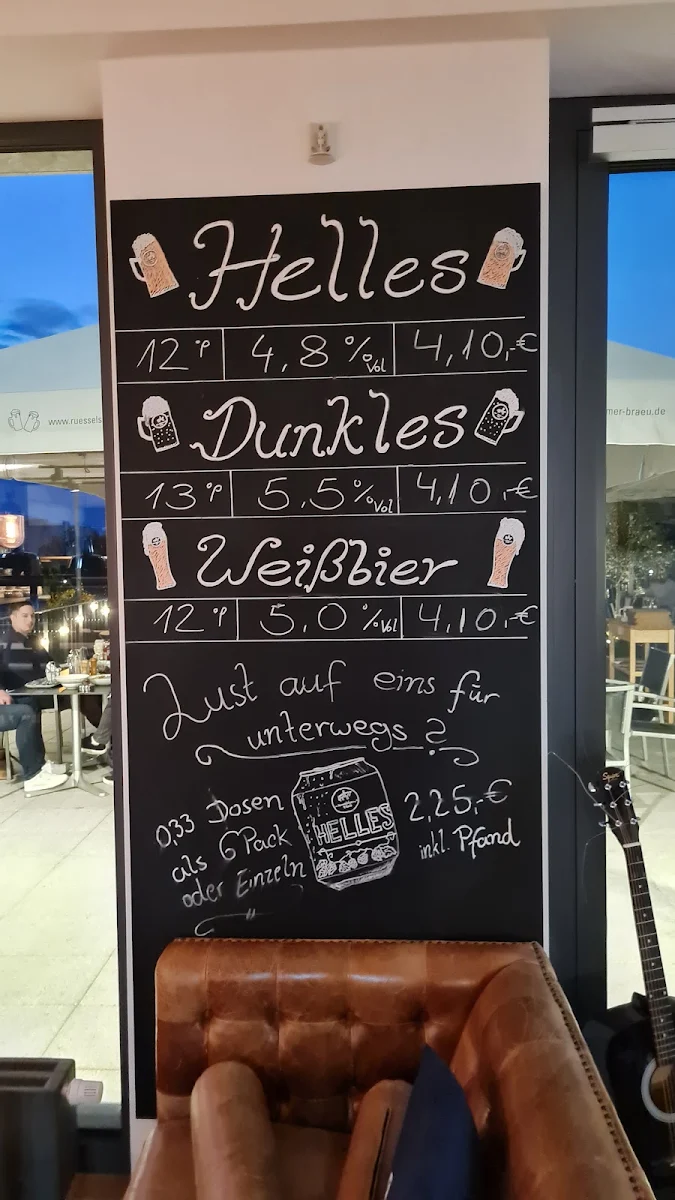 Helles
12 °P 4,8 % Vol 4,10,-€
Dunkles
13 °P 5,5 % Vol 4,10,-€
Weißbier
12 °P 5,0 % Vol 4,10,-€
Lust auf eins für
unterwegs?
0,33 Dosen
als 6Pack
oder Einzeln
HELLES
2,25,-€
inkl. Pfand
www.ruessels
mer-braeu.de
Squier